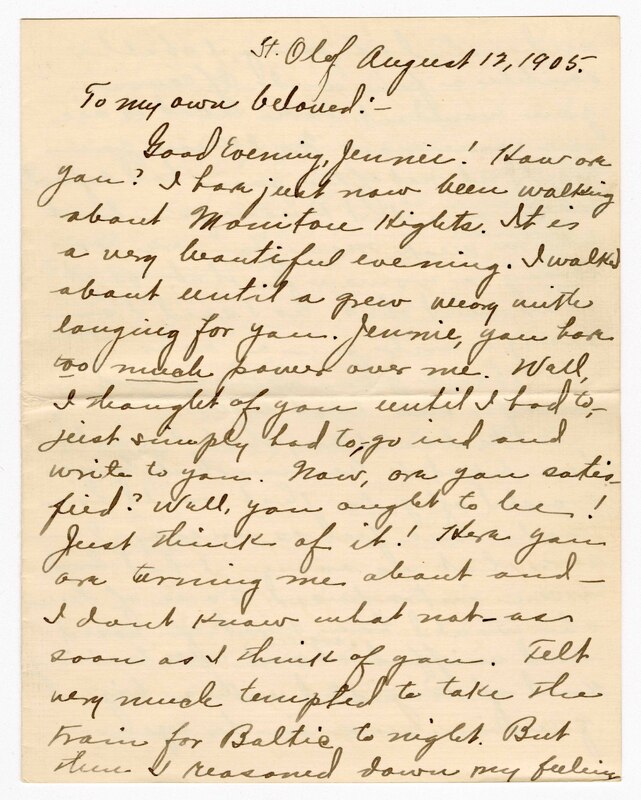 St. Olof August 12, 1905.
To my own beloved:-
Good Evening, Jennie! How are
you? I have just now been walking
about Monitou Hights. It is
a very beautiful evening. I walked
about until a grew weary with
longing for you. Jennie, you have
too much power over me. Well,
I thought of you until I had to,-
just simply had to,-go ind and
write to you. Now, are you satis-
fied? Well, you ought to be!
Just think of it! Here you
are turning me about and-
I dont know what not-as
soon as I think of you. Felt
very much tempted to take the
train for Baltic to night. But
then I reasoned down my feeling